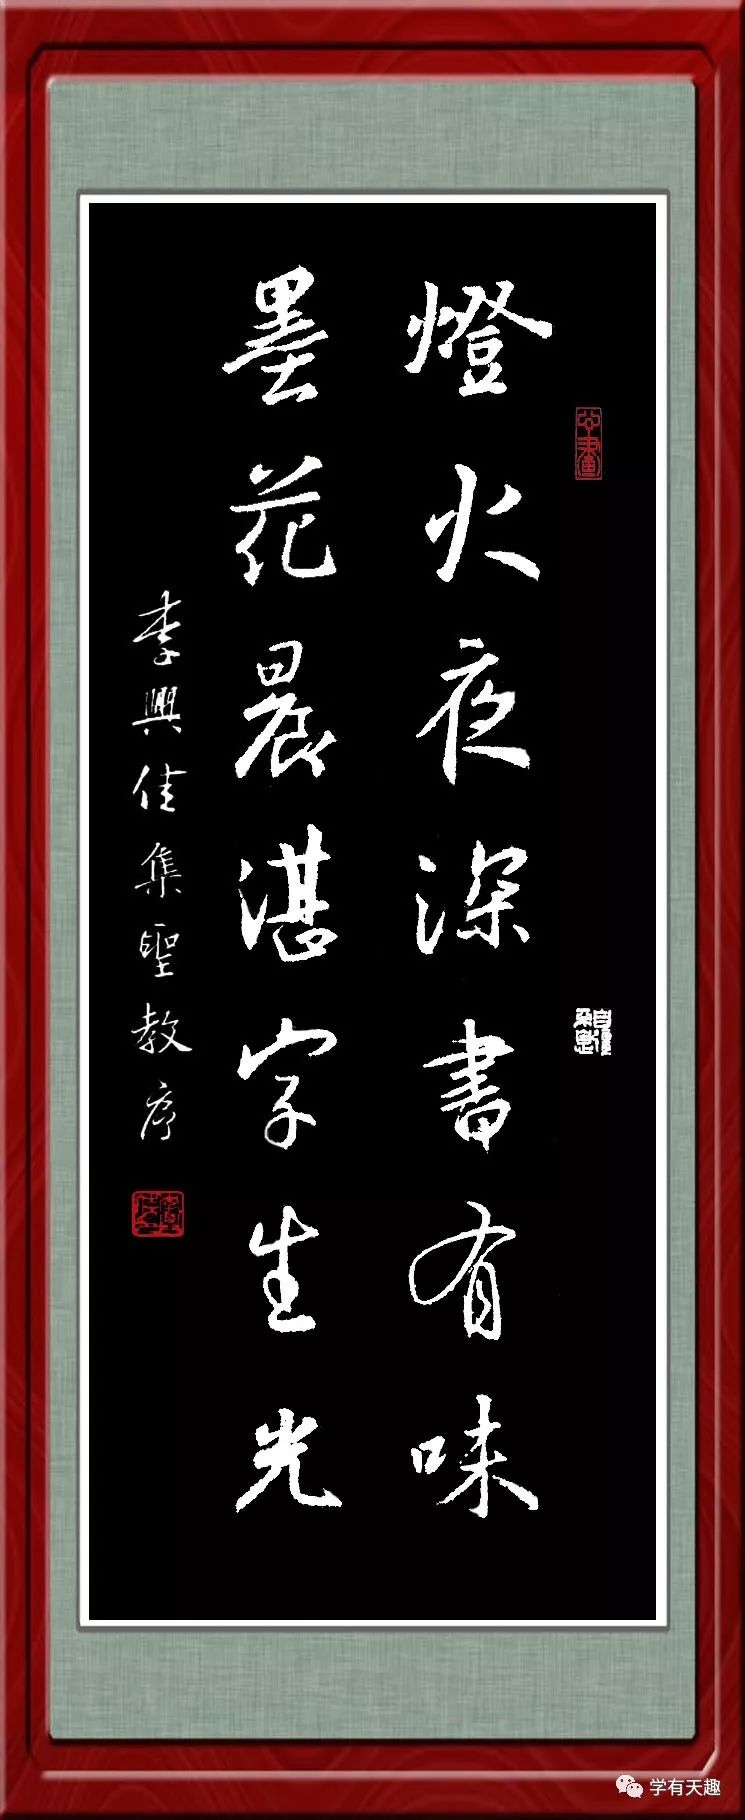 燈火夜深書有味
墨花晨湛字生光
李興佳集聖教序
学有天趣